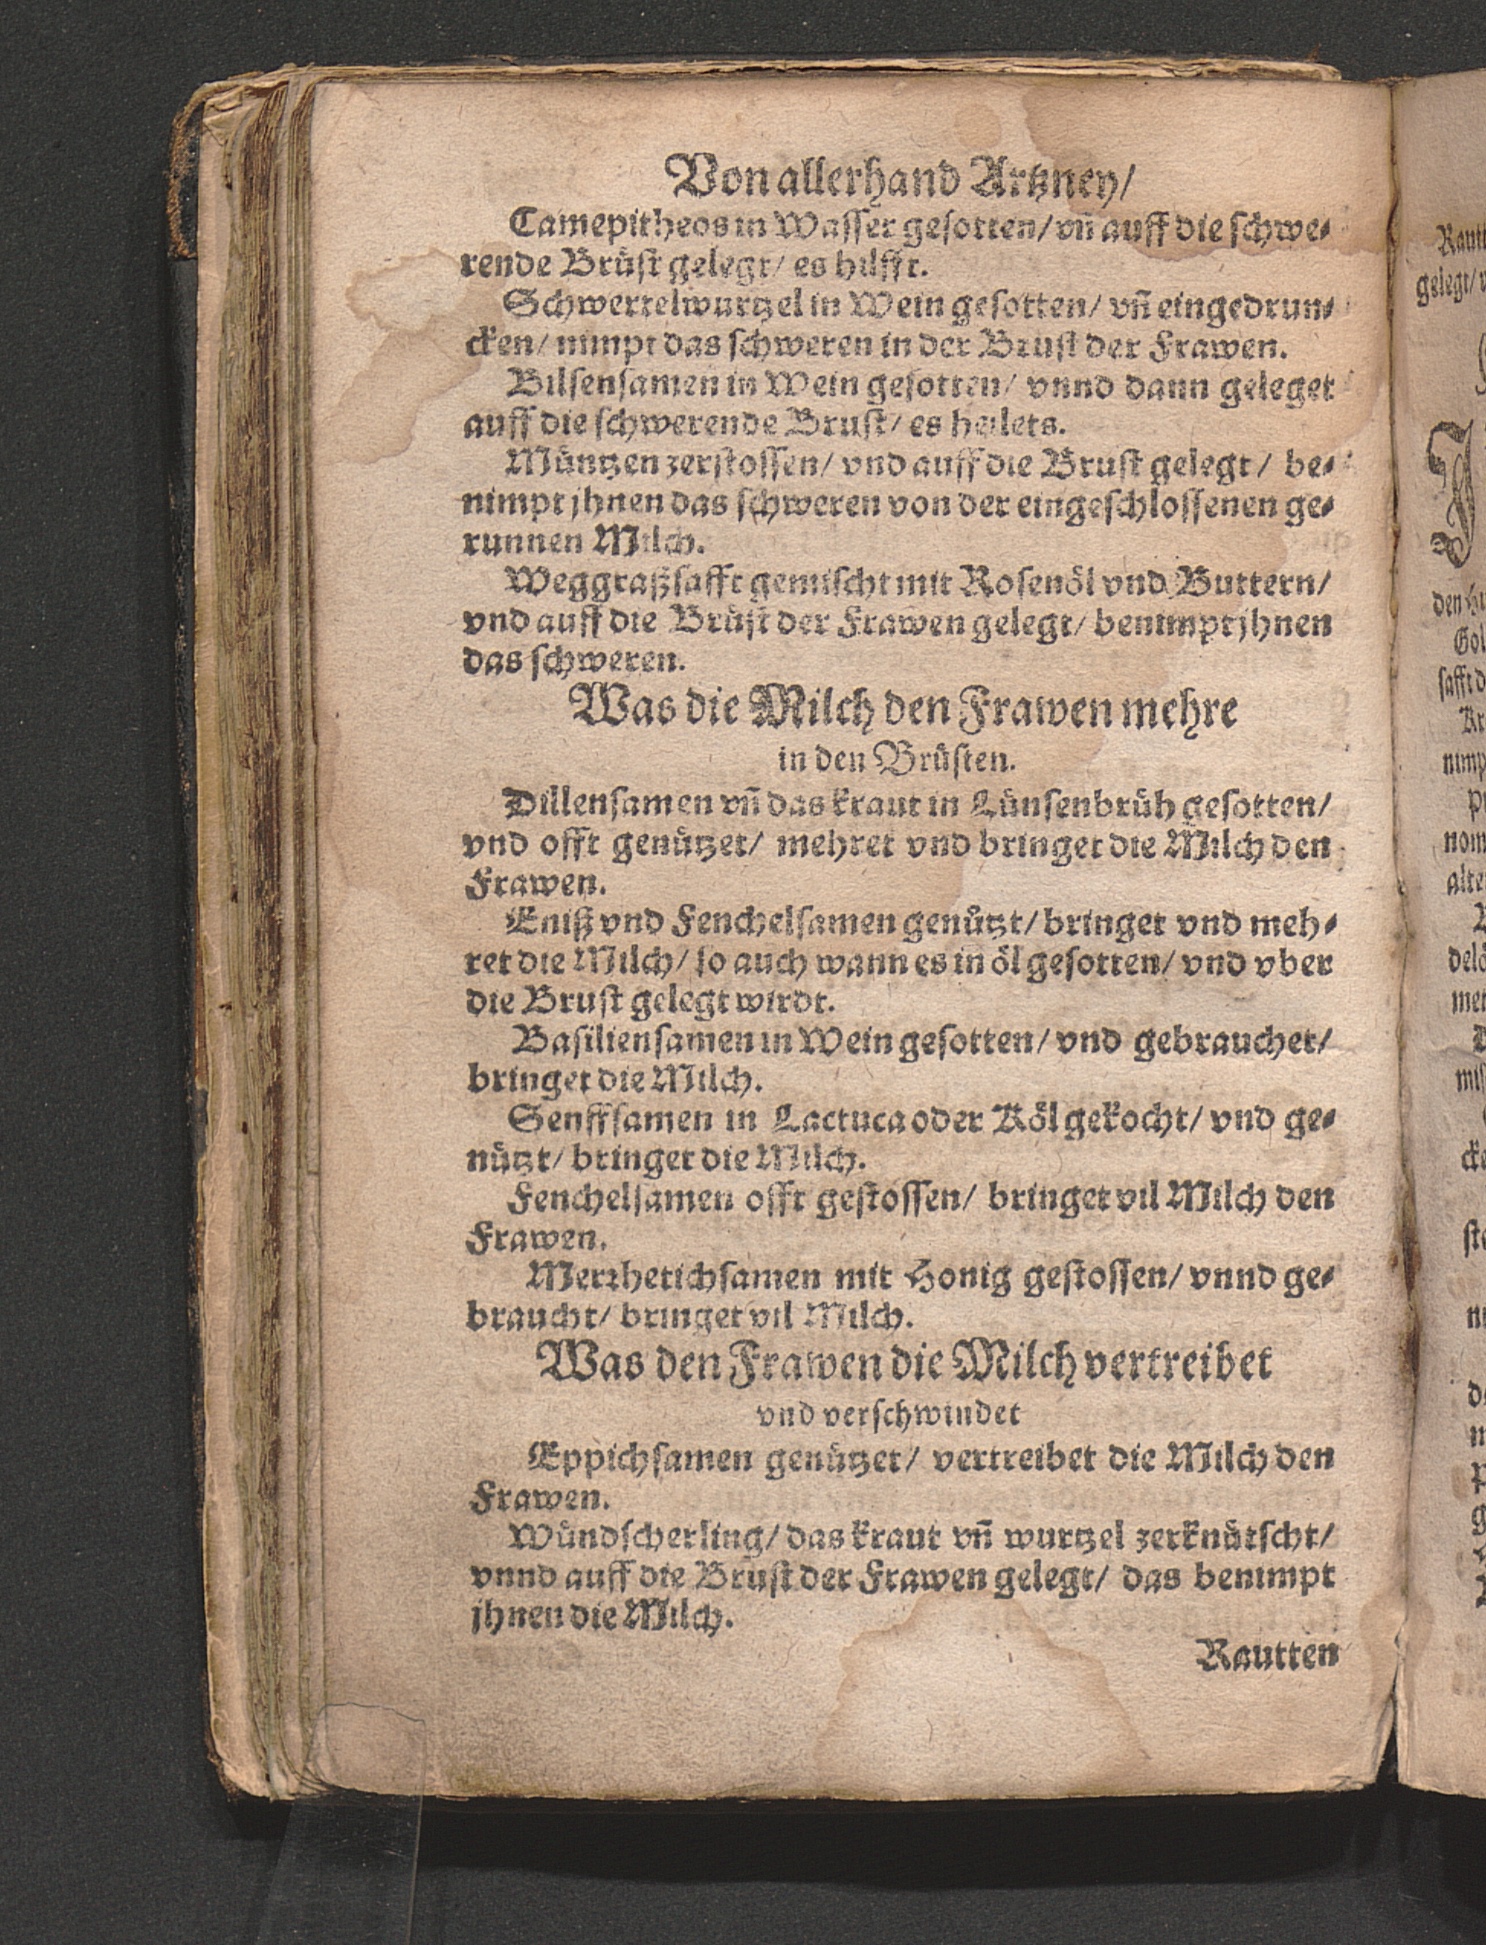 Von allerhand Artzney/
Camepitheos in Wasser gesotten/ vñ auff die schwe-
rende Brüst gelegt/ es hilfft.
Schwertelwurtzel in Wein gesotten/ vñ eingedrun-
cken/ nimpt das schweren in der Brust der Frawen.
Bilsensamen in Wein gesotten/ vnnd dann geleget
auff die schwerende Brust/ es heilets.
Müntzen zerstossen/ vnd auff die Brust gelegt/ be-
nimpt jhnen das schweren von der eingeschlossenen ge-
runnen Milch.
Weggraßsafft gemischt mit Rosenöl vnd Buttern/
vnd auff die Brüst der Frawen gelegt/ benimpt jhnen
das schweren.
Was die Milch den Frawen mehre
in den Brüsten.
Dillensamen vñ das kraut in Lünsenbrüh gesotten/
vnd offt genützet/ mehret vnd bringet die Milch den
Frawen.
Eniß vnd Fenchelsamen genützt/ bringet vnd meh-
ret die Milch/ so auch wann es in öl gesotten/ vnd vber
die Brust gelegt wirdt.
Basiliensamen in Wein gesotten/ vnd gebrauchet/
bringet die Milch.
Senffsamen in Lactuca oder Köl gekocht/ vnd ge-
nützt/ bringet die Milch.
Fenchelsamen offt gestossen/ bringet vil Milch den
Frawen.
Merrhetichsamen mit Honig gestossen/ vnnd ge-
braucht/ bringet vil Milch.
Was den Frawen die Milch vertreibet
vnd verschwindet
Eppichsamen genützet/ vertreibet die Milch den
Frawen.
Wündscherling/ das kraut vñ wurtzel zerknütscht/
vnnd auff die Brüst der Frawen gelegt/ das benimpt
jhnen die Milch.
Rautten
gelegt/